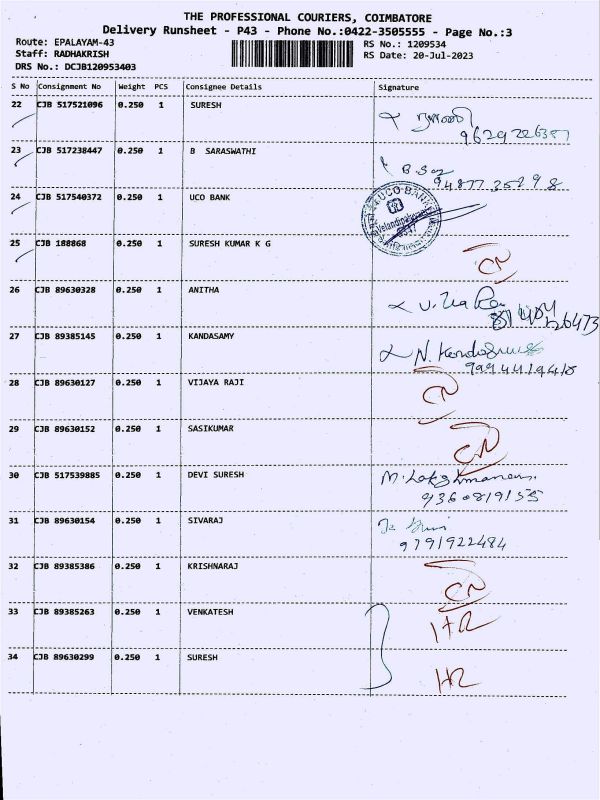 THE PROFESSIONAL COURIERS, COIMBATORE
Delivery Runsheet - P43 - Phone No.:0422-3505555 - Page No.:3
Route: EPALAYAM-43
Staff: RADHAKRISH
DRS No.: DCJB120953403
RS No.: 1209534
RS Date: 20-Jul-2023
S No Consignment No Weight PCS Consignee Details Signature
22 CJB 517521096 0.250 1 SURESH
9629226387
23 CJB 517238447 0.250 1 B SARASWATHI
24 CJB 517540372 0.250 1 UCO BANK
UCO BANK
25 CJB 188868 0.250 1 SURESH KUMAR K G CN
26 CJB 89630328 0.250 1 ANITHA
27 CJB 89385145 0.250 1 KANDASAMY
28 CJB 89630127 0.250 1 VIJAYA RAJI CN
29 CJB 89630152 0.250 1 SASIKUMAR CN
30 CJB 517539885 0.250 1 DEVI SURESH
9360819155
31 CJB 89630154 0.250 1 SIVARAJ
9791922484
32 CJB 89385386 0.250 1 KRISHNARAJ CN
33 CJB 89385263 0.250 1 VENKATESH
34 CJB 89630299 0.250 1 SURESH